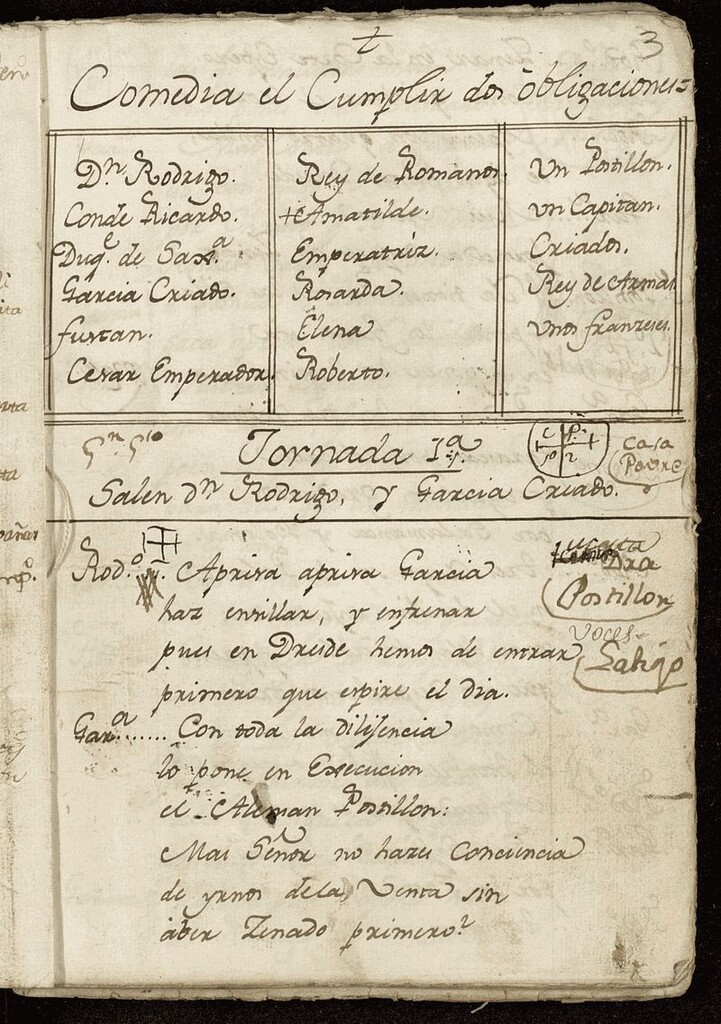 3
Comedia el Cumplir dos obligaciones=
Dn. Rodrigo.
Conde Ricardo.
Duqe. de Saxa.
Garcia Criado.
fustan.
Cesar Emperador.
Rey de Romanos.
+Amatilde.
Emperatriz.
Rosarda.
Elena
Roberto.
Un Postillon.
un Capitan.
Criados.
Rey de Armas
Unos franzeses.
Jornada 1a.
Casa
Pobre
Salen dn. Rodrigo, y Garcia Criado.
Rodo. Aprisa aprisa Garcia
haz ensillar, y enfrenar
pues en Dresde hemos de entrar
primero que espire el dia.
Postillon
Voces
Latigo
Gara....... Con toda la dilisencia
lo pone en Execucion
el Aleman Postillon:
Mas Señor no hazes Conciencia
de yrnos de la Venta sin
aber Zenado primero?